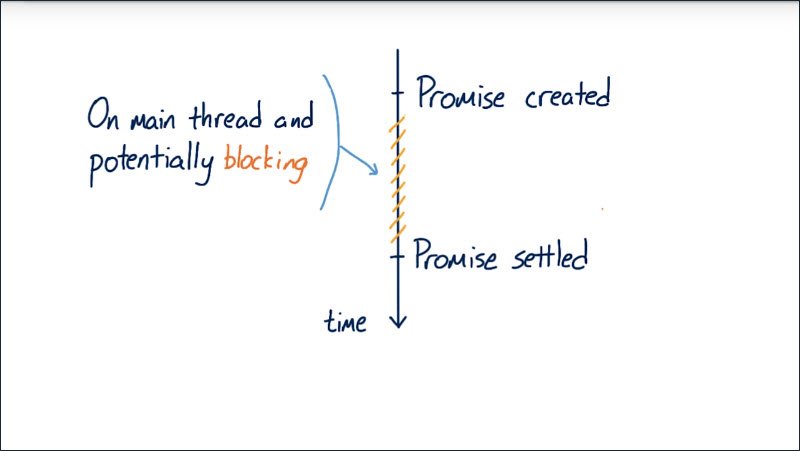 On main thread and
potentially blocking
Promise created
Promise settled
time